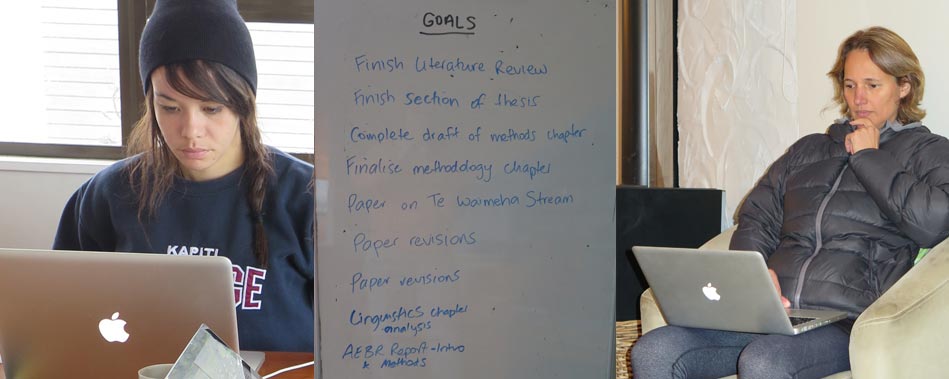 GOALS
Finish Literature Review
Finish section of thesis
Complete draft of methods chapter
Finalise methodology chapter
Paper on Te Waimeha Stream
Paper revisions
Paper revisions
Linguistics chapter
analysis
AEBR Report - Intro
& Methods
KAPITI
GE